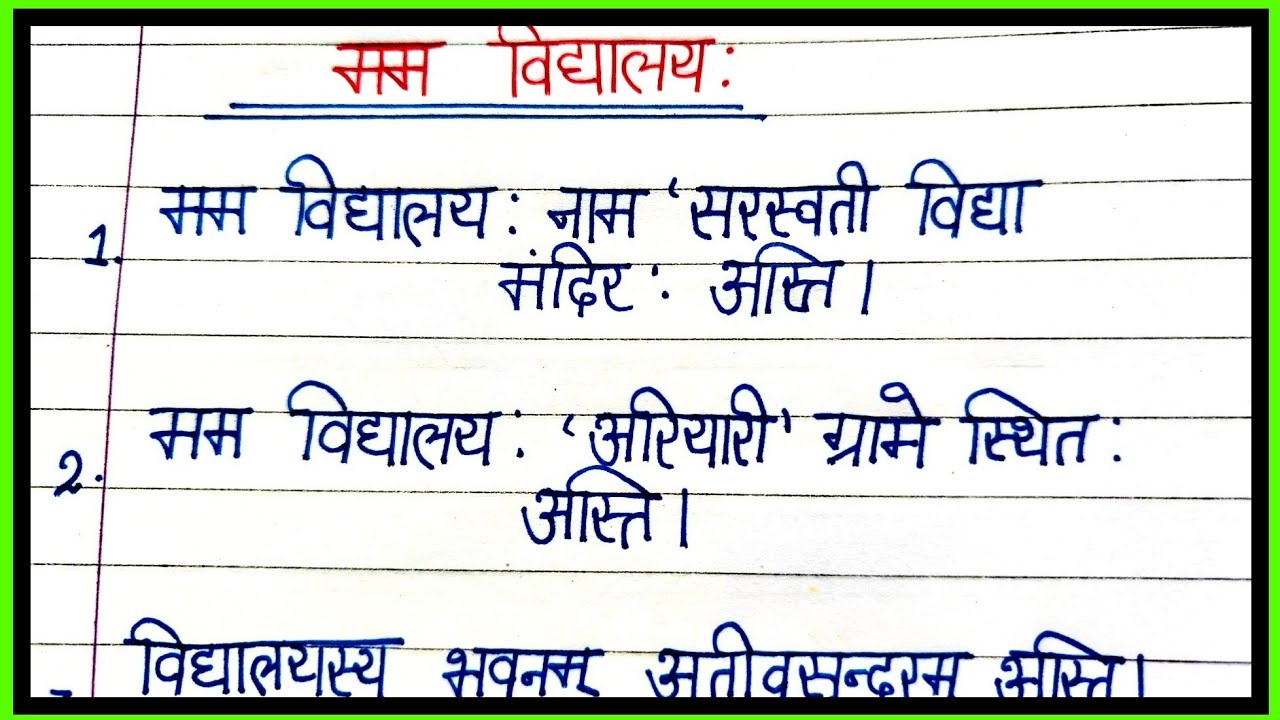 मम विद्यालय:
1. मम विद्यालय: नाम 'सरस्वती विद्या
मंदिर: अस्ति।
2. मम विद्यालय: 'अरियारी' ग्रामे स्थित:
अस्ति।
विद्यालयस्य भवनम् अतीवसन्दरम अस्ति।